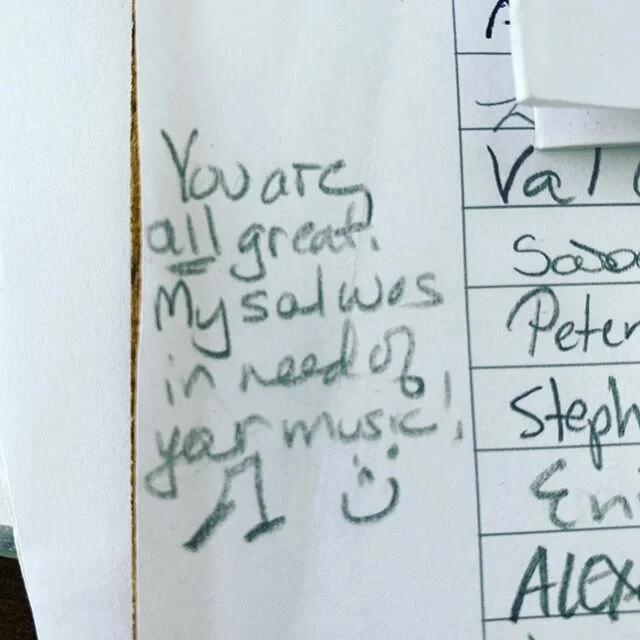 You are
all great.
My soul was
in need of
your music!
:)
Val
Peter
Steph
En
Alex